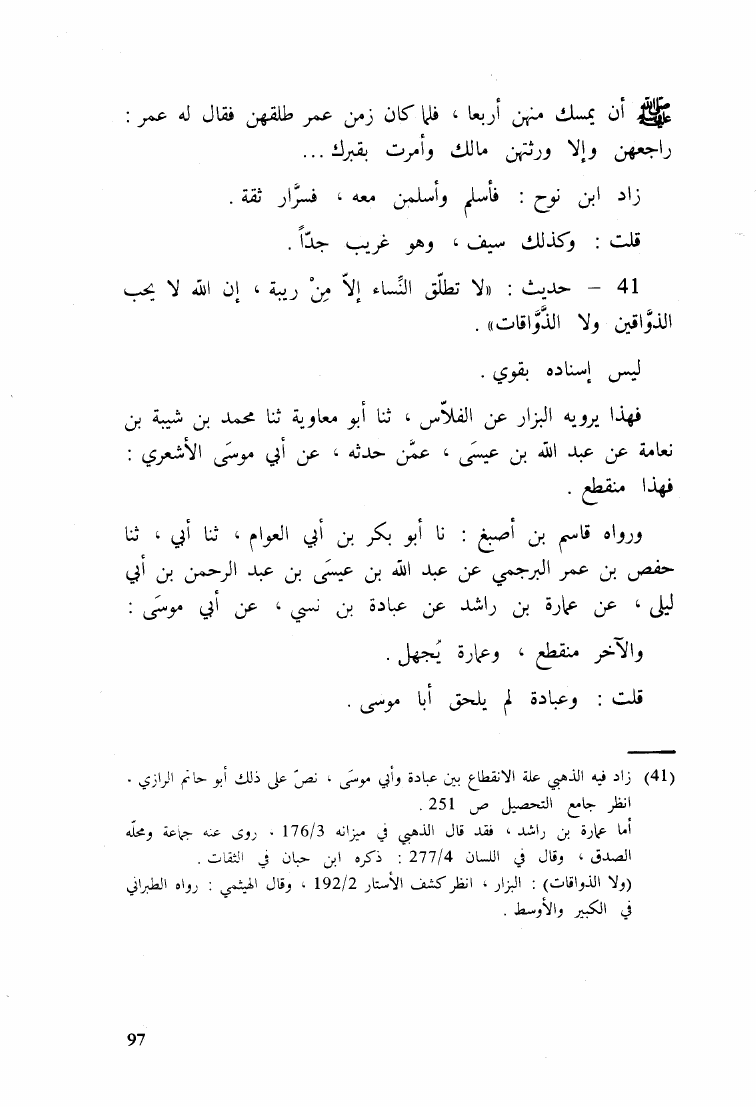 ﷺ أن يمسك منهن أربعا ، فلما كان زمن عمر طلقهن فقال له عمر :
راجعهن وإلا ورثتهن مالك وأمرت بقبرك ...
زاد ابن نوح : فأسلم وأسلمن معه ، فسرَّار ثقة .
قلت : وكذلك سيف ، وهو غريب جدّاً .
41 – حديث : «لا تطلّق النِّساء إلاّ مِنْ ريبة ، إن الله لا يحب
الذوَّاقين ولا الذَّوَّاقات» .
ليس إسناده بقوي .
فهذا يرويه البزار عن الفلاّس ، ثنا أبو معاوية ثنا محمد بن شيبة بن
نعامة عن عبد الله بن عيسَى ، عمَّن حدثه ، عن أبي موسَى الأشعري :
فهذا منقطع .
ورواه قاسم بن أصبغ : نا أبو بكر بن أبي العوام ، ثنا أبي ، ثنا
حفص بن عمر البرجمي عن عبد الله بن عيسَى بن عبد الرحمن بن أبي
ليلى ، عن عمارة بن راشد عن عبادة بن نسي ، عن أبي موسَى :
والآخر منقطع ، وعمارة يُجهل .
قلت : وعبادة لم يلحق أبا موسى .
(41) زاد فيه الذهبي علة الانقطاع بين عبادة وأبي موسَى ، نصّ على ذلك أبو حاتم الرازي .
انظر جامع التحصيل ص 251 .
أما عمارة بن راشد ، فقد قال الذهبي في ميزانه 176/3 . روى عنه جماعة ومحلّه
الصدق ، وقال في اللسان 277/4 : ذكره ابن حبان في الثقات .
(ولا الذواقات) : البزار ، انظر كشف الأستار 192/2 ، وقال الهيثمي : رواه الطبراني
في الكبير والأوسط .
97